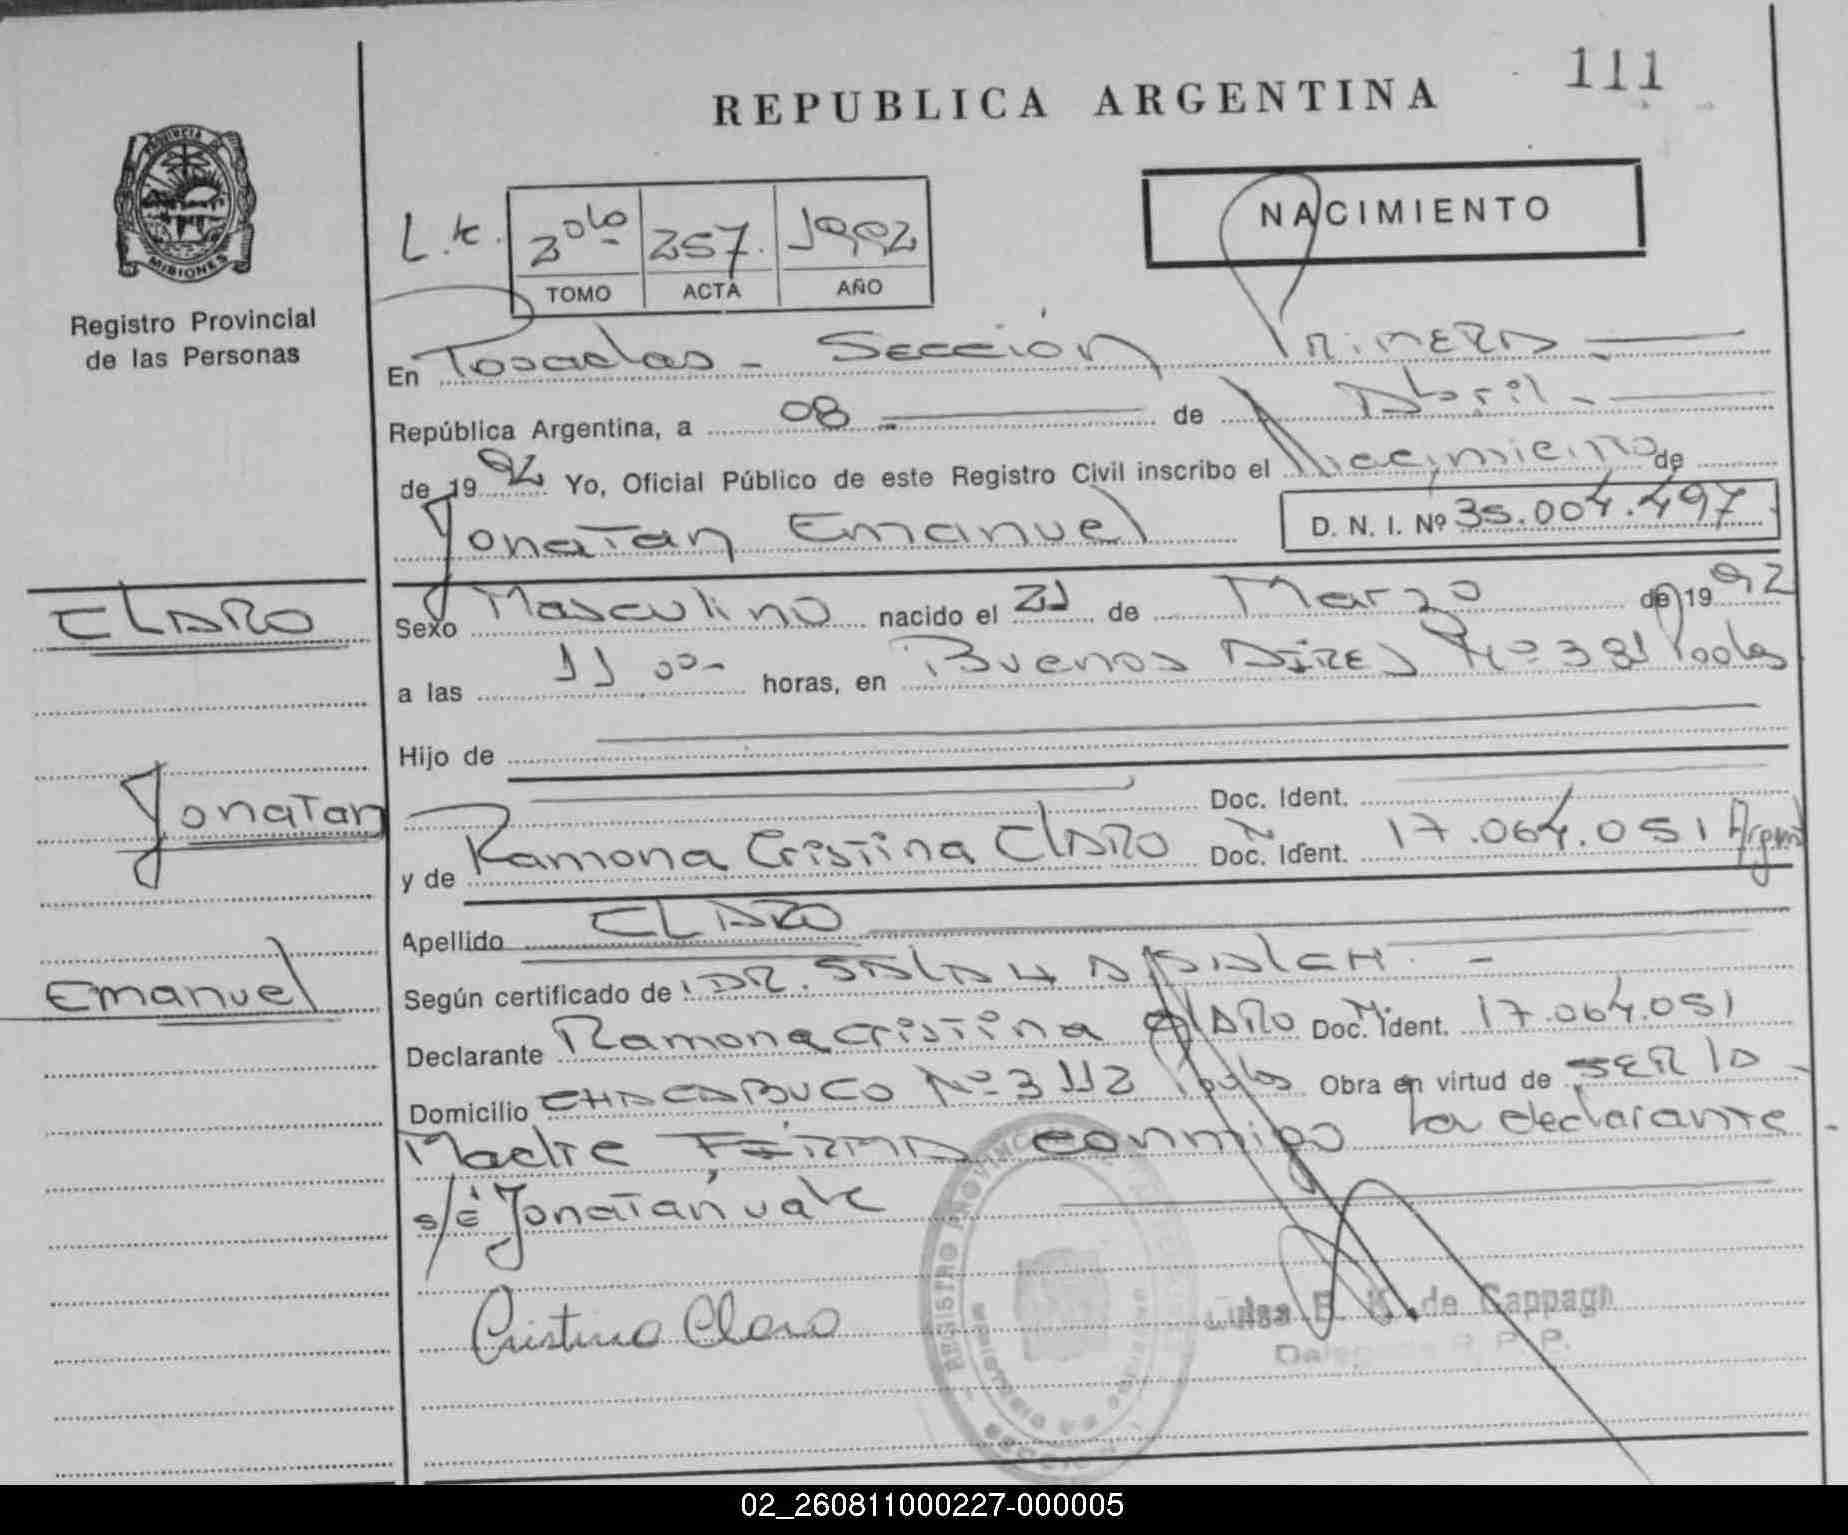 111
REPUBLICA ARGENTINA
PROVINCIA DE
MISIONES
Registro Provincial
de las Personas
NACIMIENTO
L.k. 2do 257. 1992
TOMO ACTA AÑO
En Posadas - Sección Primera
República Argentina, a 08 de Abril -
de 1992 Yo, Oficial Público de este Registro Civil inscribo el Nacimiento de
Jonatan Emanuel D. N. I. Nº 35.004.497
CLARO
Sexo Masculino nacido el 21 de Marzo de 1992
a las 11 00- horas, en Buenos Aires Nº 381 Pdas
Hijo de
Doc. Ident.
Jonatan
y de Ramona Cristina CLARO Doc. Ident. 17.064.051 Argent
Apellido CLARO
Emanuel
Según certificado de DR. SALAH -
Declarante Ramona Cristina CLARO Doc. Ident. 17.064.051
Domicilio CHACABUCO Nº 3112 Pdas Obra en virtud de SER la
Madre FIRMA conmigo la declarante -
s/é Jonatan vale
Cristina Claro
REGISTRO PROVINCIAL
Luisa E. K. de Cappagh
R. P. P.
02_260811000227-000005